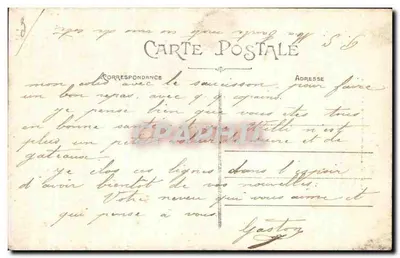 CARTE POSTALE
CORRESPONDANCE
ADRESSE
mon colis avec le saucisson pour faire
un bon repas avec q.q. copains
je pense bien que vous êtes tous
en bonne santé n'est
plus un peu et de
gateaux.
Je clos ces lignes dans l'espoir
d'avoir bientot de vos nouvelles.
Votre neveu qui vous aime et
qui pense à vous
Gaston